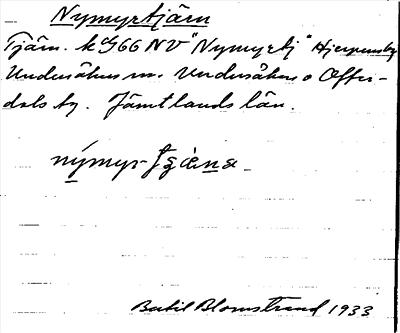 Nymyrtjärn
Tjärn. k G66 NV "Nymyrtj" Hjerpensby
Undersåkers sn. Undersåkers o Offer-
dals tg. Jämtlands län.
nýmyr-
Bertil Blomstrand 1933